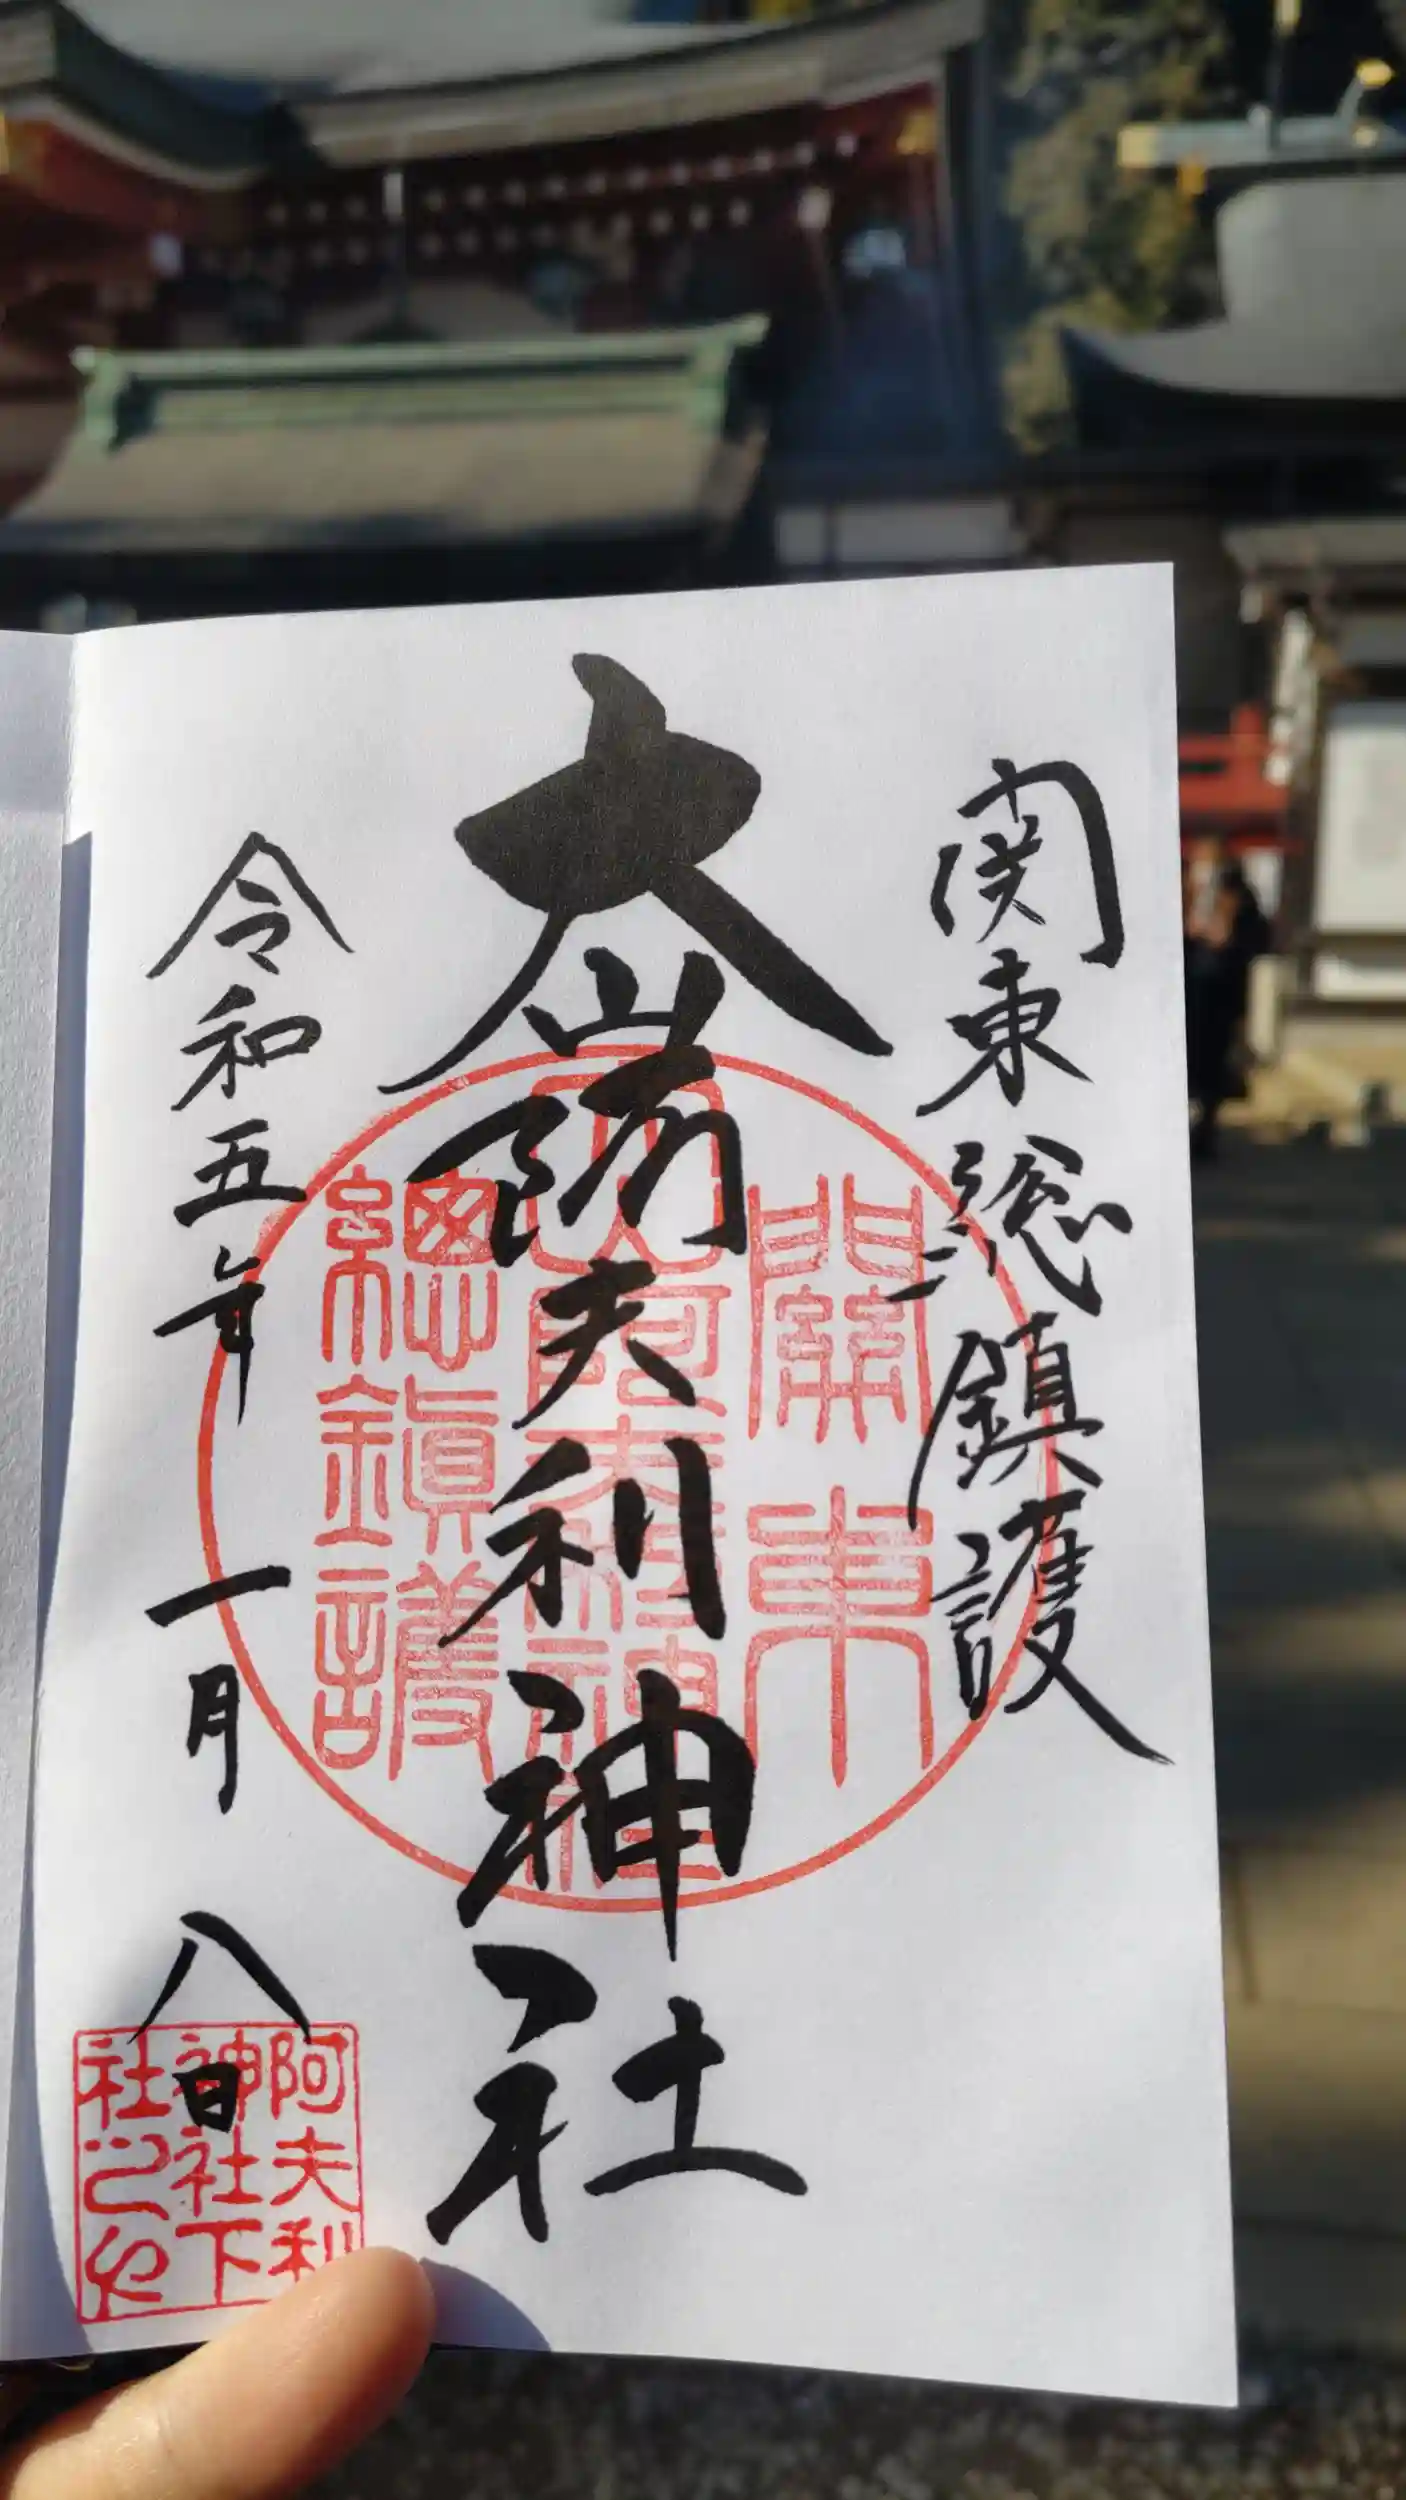 関東総鎮護
大山阿夫利神社
令和五年一月八日
關東
總鎭護
阿夫利
神社下
社之印